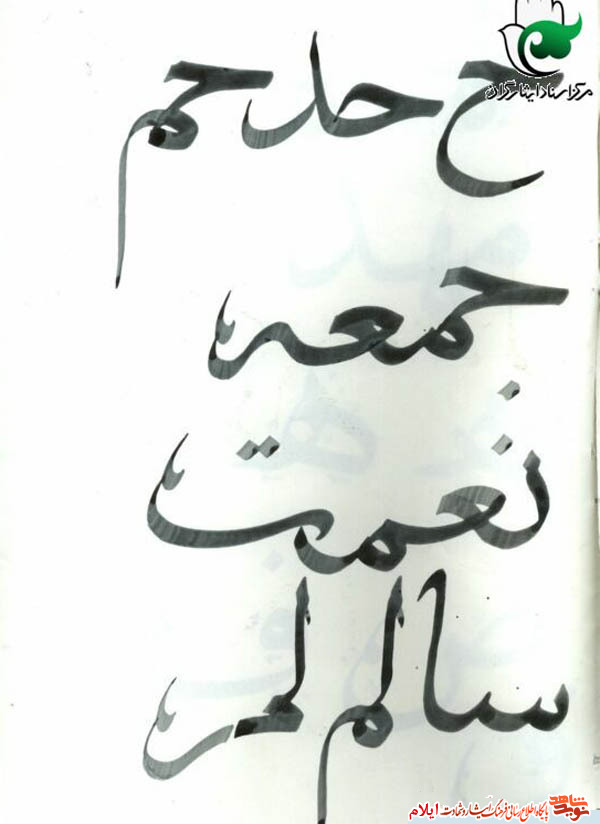 مرکز اسناد ایثارگران
ح حد حم
حمعه
نعمت
سالم لمر
نوید شاهد پایگاه اطلاع رسانی فرهنگ ایثار و شهادت ایلام